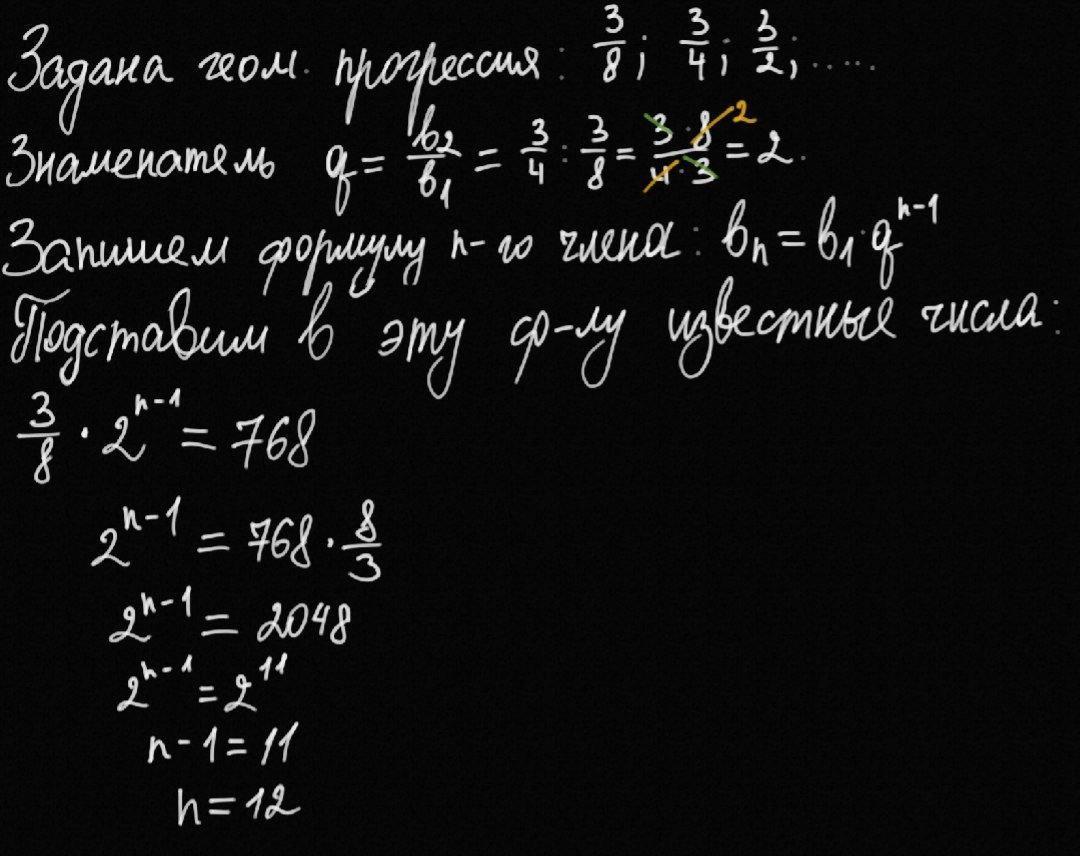 Задана геом. прогрессия: 3/8; 3/4; 3/2; .....
Знаменатель q = b₂/b₁ = 3/4 : 3/8 = 3·8/4·3 = 2.
2
Запишем формулу n-го члена: bₙ = b₁·qⁿ⁻¹
Подставим в эту ф-лу известные числа:
3/8 · 2ⁿ⁻¹ = 768
2ⁿ⁻¹ = 768 · 8/3
2ⁿ⁻¹ = 2048
2ⁿ⁻¹ = 2¹¹
n-1 = 11
n = 12